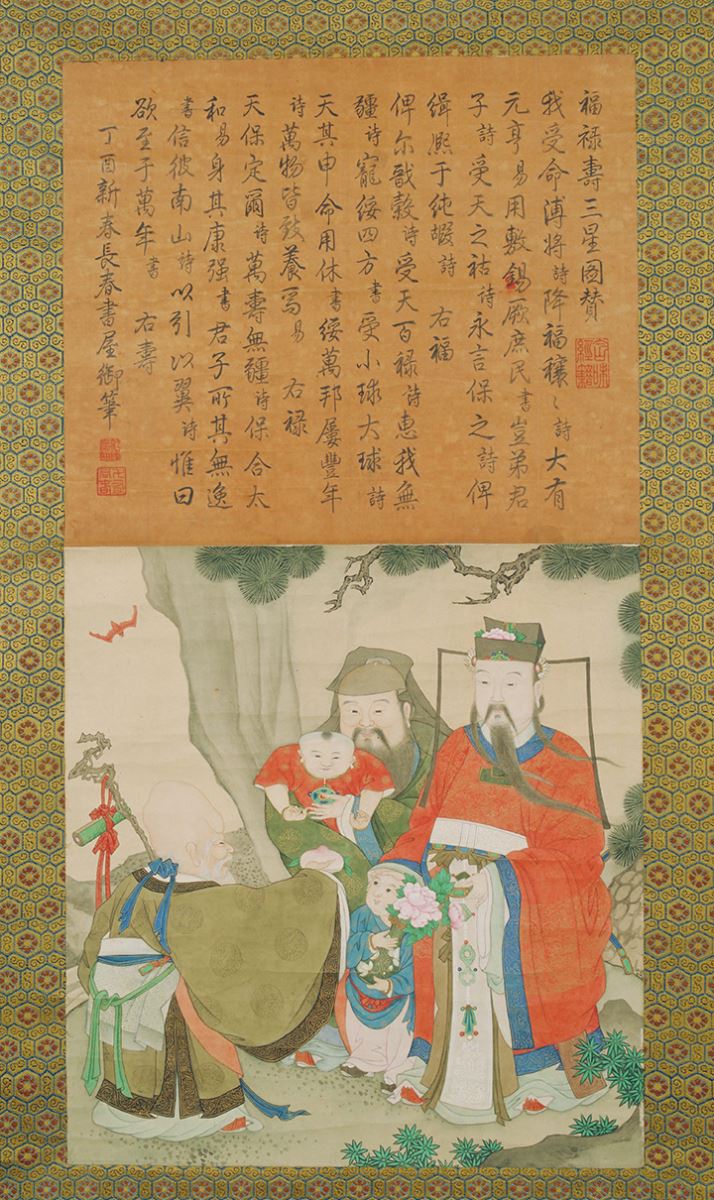 福禄壽三星圖贊
我受命溥將詩降福穰々詩大有
元亨易用敷錫厥庶民書豈弟君
子詩受天之祜詩永言保之詩俾
緝熙于純嘏詩 右福
俾尔戩穀詩受天百禄詩惠我無
疆詩寵綏四方書受小球大球詩
天其申命用休書綏萬邦屢豐年
詩萬物皆致養焉易 右禄
天保定爾詩萬壽無疆詩保合太
和易身其康强書君子所其無逸
書信彼南山詩以引以翼詩惟曰
欲至于萬年書 右壽
丁酉新春長春書屋御筆